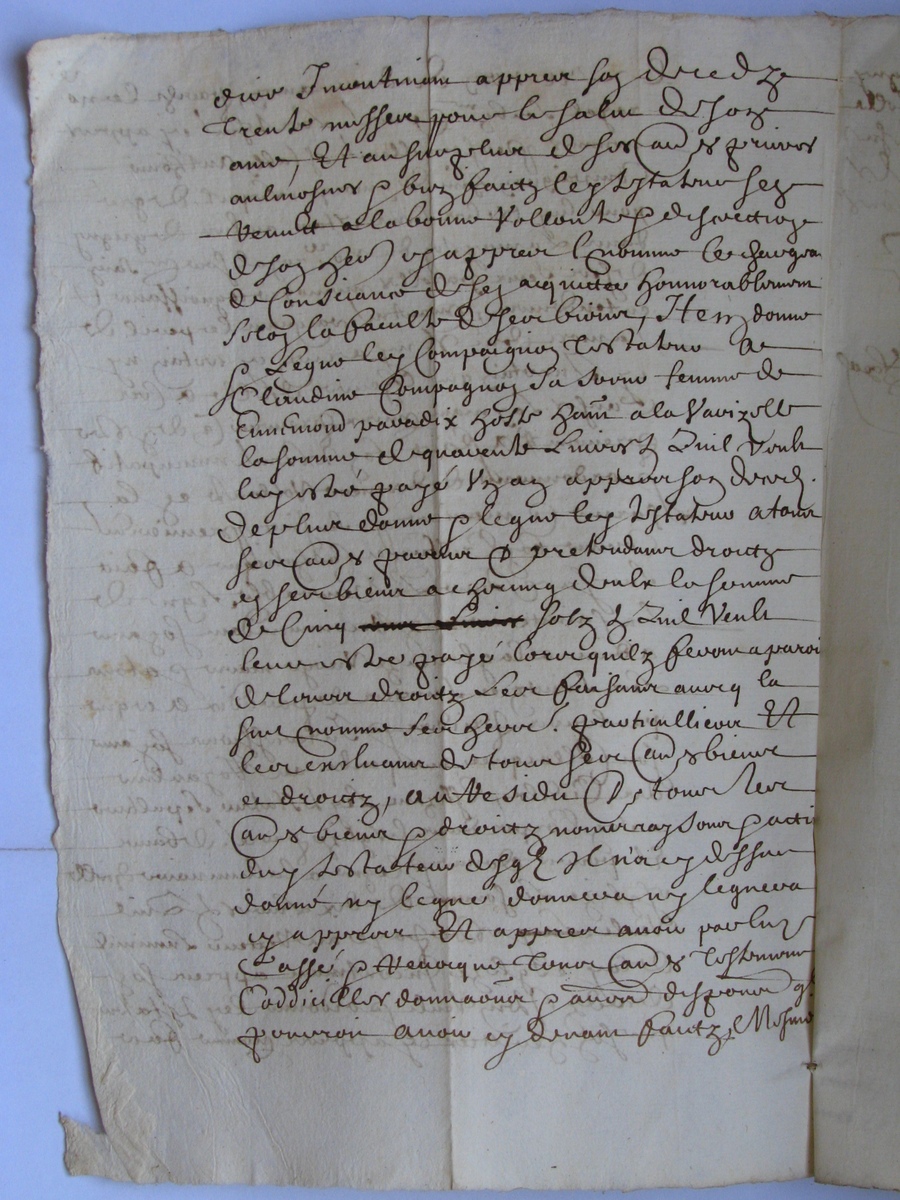 dire Incontinant appres son deced
Trente messes pour le salut de son
ame, Et au surplus de ses aul̃es prieres
aulmosnes & bien faictz led testateur sen
Remett a la bonne Vollonté & discrection
de son her̃ cy appres nommé le chargean
de Consciance de sen acquicter honnorablement
selon la faculté de ses biens, Item donne
& Legue led Compagnon Testateur A
Claudine Compagnon sa soeur femme de
Ennemond paradix hoste hãnt a la Varizelle
la somme de quarente Livres t Quil Veult
luy estre payé Vng an appres son deced.
De plus donne & legue led testateur a tous
ses aul̃es parens & pretendans droictz
en ses biens a chacung deulx la somme
de Cinq solz t Quil Veult
leur estre payé lors quilz feront aparoi
de leurs droictz Les faisant avecq la
sus nommé ses hers. particulliers Et
les excluans de tous ses aul̃es biens
et droictz, au Residu De tous ses
aul̃es biens & droictz noms raysons & acti
dud testateur desqlz Il n'a cy dessus
donné ny legué donnera ny leguera
cy appres Et appres avoir par luy
Cassé & Revocque Tous aul̃es Testemens
Coddicilles donnaons & aul̃es dispons ql
pourroit avoir cy devant faictz, Mesme